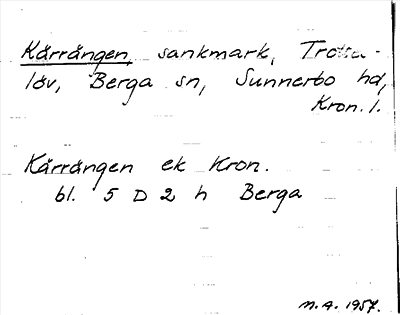 Kärrängen, sankmark, Trotta-
löv, Berga sn, Sunnerbo hd,
Kron. l.
Kärrängen ek Kron.
bl. 5 D 2 h Berga
M.A. 1957.